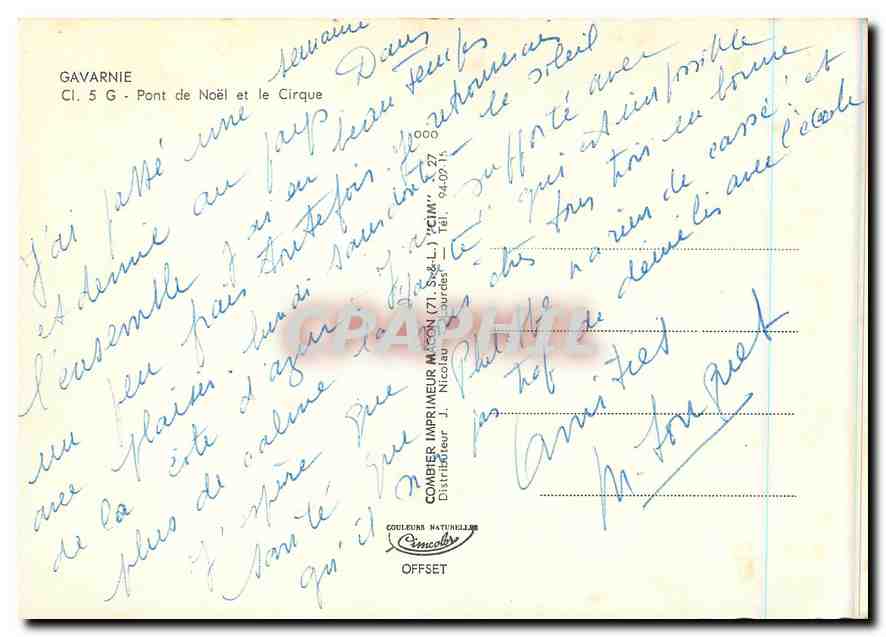 GAVARNIE
Cl. 5 G - Pont de Noël et le Cirque
J'ai passé une semaine
et demie au pays. Dans
l'ensemble j'ai eu beau temps
un peu frais toutefois. Je retrouverai
avec plaisir lundi sans doute le soleil
de la côte d'azur. J'ai supporté avec
plus de calme la qui est impossible
J'espère que vous êtes tous trois en bonne
santé que Philippe n'a rien de cassé et
qu'il n'a pas trop de démêlés avec l'école
Amitiés
M. Fouquet
COMBIER IMPRIMEUR MACON (71. S.-&-L.) "CIM"
Distributeur J. Nicolau Lourdes - Tél. 94-02-15
COULEURS NATURELLES
Cimcolor
OFFSET
CPAPHIL